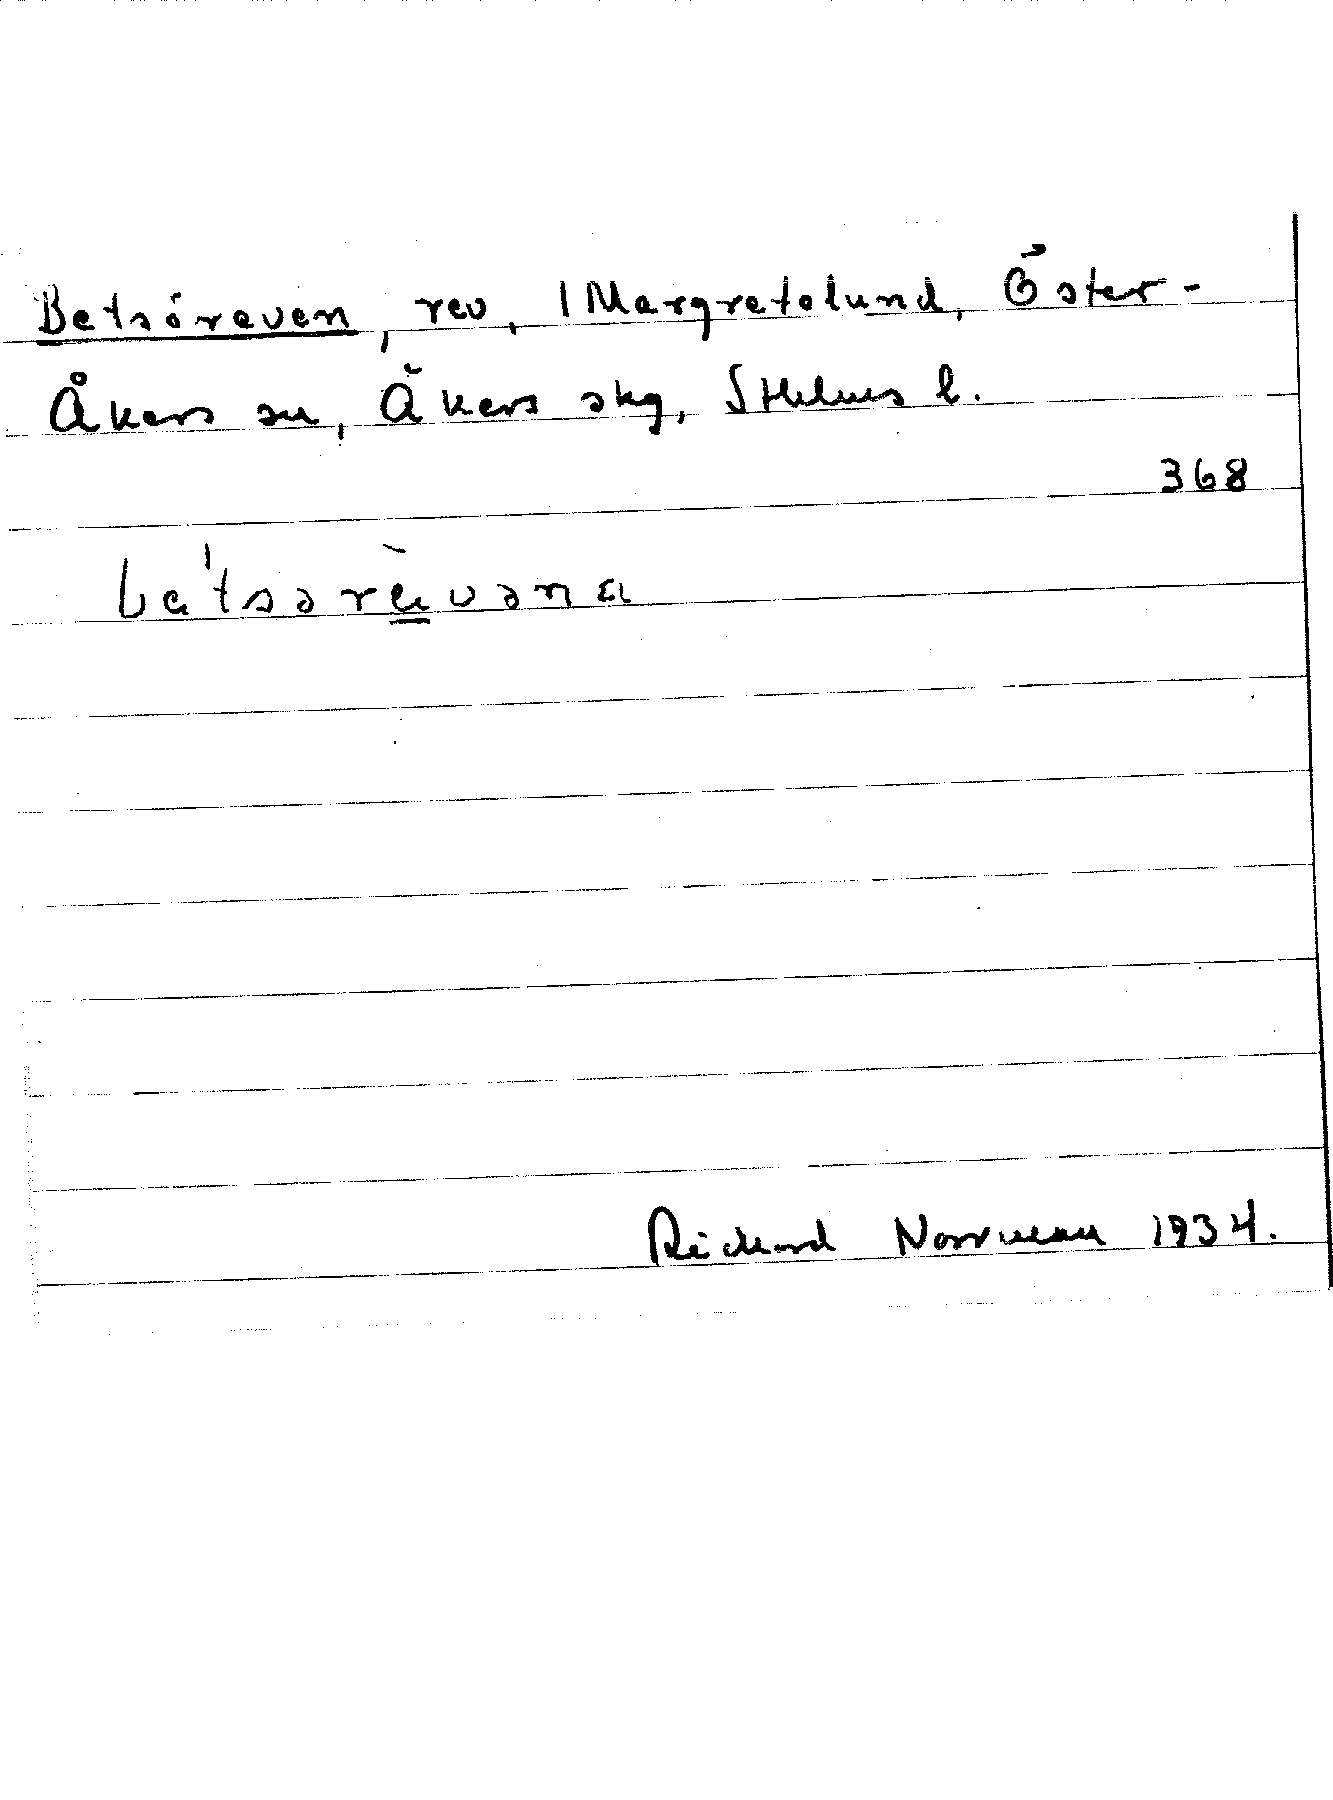 Betsöreven, rev, 1 Margretelund, Öster-
Åkers sn, Åkers skg, Sthlms l.
368
be'tsərèvəna
Rickard Norrman 1934.